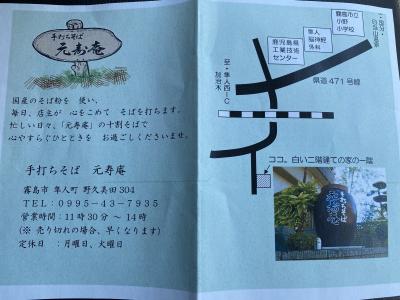 手打ちそば
元寿庵
国産のそば粉を 使い、
毎日、店主が 心をこめて そばを打ちます。
忙しい日々、「元寿庵」の十割そばで
心やすらぐひとときを お過ごしくださいませ。
手打ちそば 元寿庵
霧島市 隼人町 野久美田304
TEL:0995-43-7935
営業時間:11時30分 ~ 14時
(※ 売り切れの場合、早くなります)
定休日 :月曜日、火曜日
霧島市立
小野
小学校
隼人
脳神経
外科
鹿児島県
工業技術
センター
県道 471 号線
至・隼人西IC
加治木
ココ。白い二階建ての家の一階
手打ちそば
元寿庵